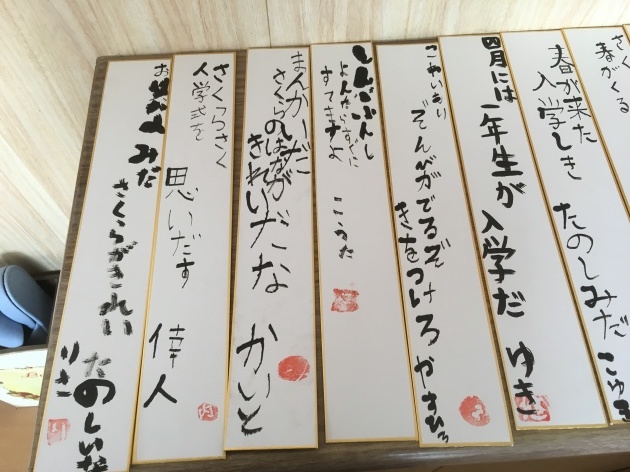 春がくる
春が来た
入学しき
たのしみだ
四月には
一年生が
入学だ
ゆき
こわいあり
ぞんびがでるぞ
きをつけろ
やすひろ
しんぶんし
よんだらすぐに
すてますよ
こうた
まんかいだ
さくらのはなが
きれいだな
かいと
さくらさく
入学式を
思いだす
倖人
おはなみだ
さくらがきれい
たのしいな
りさ